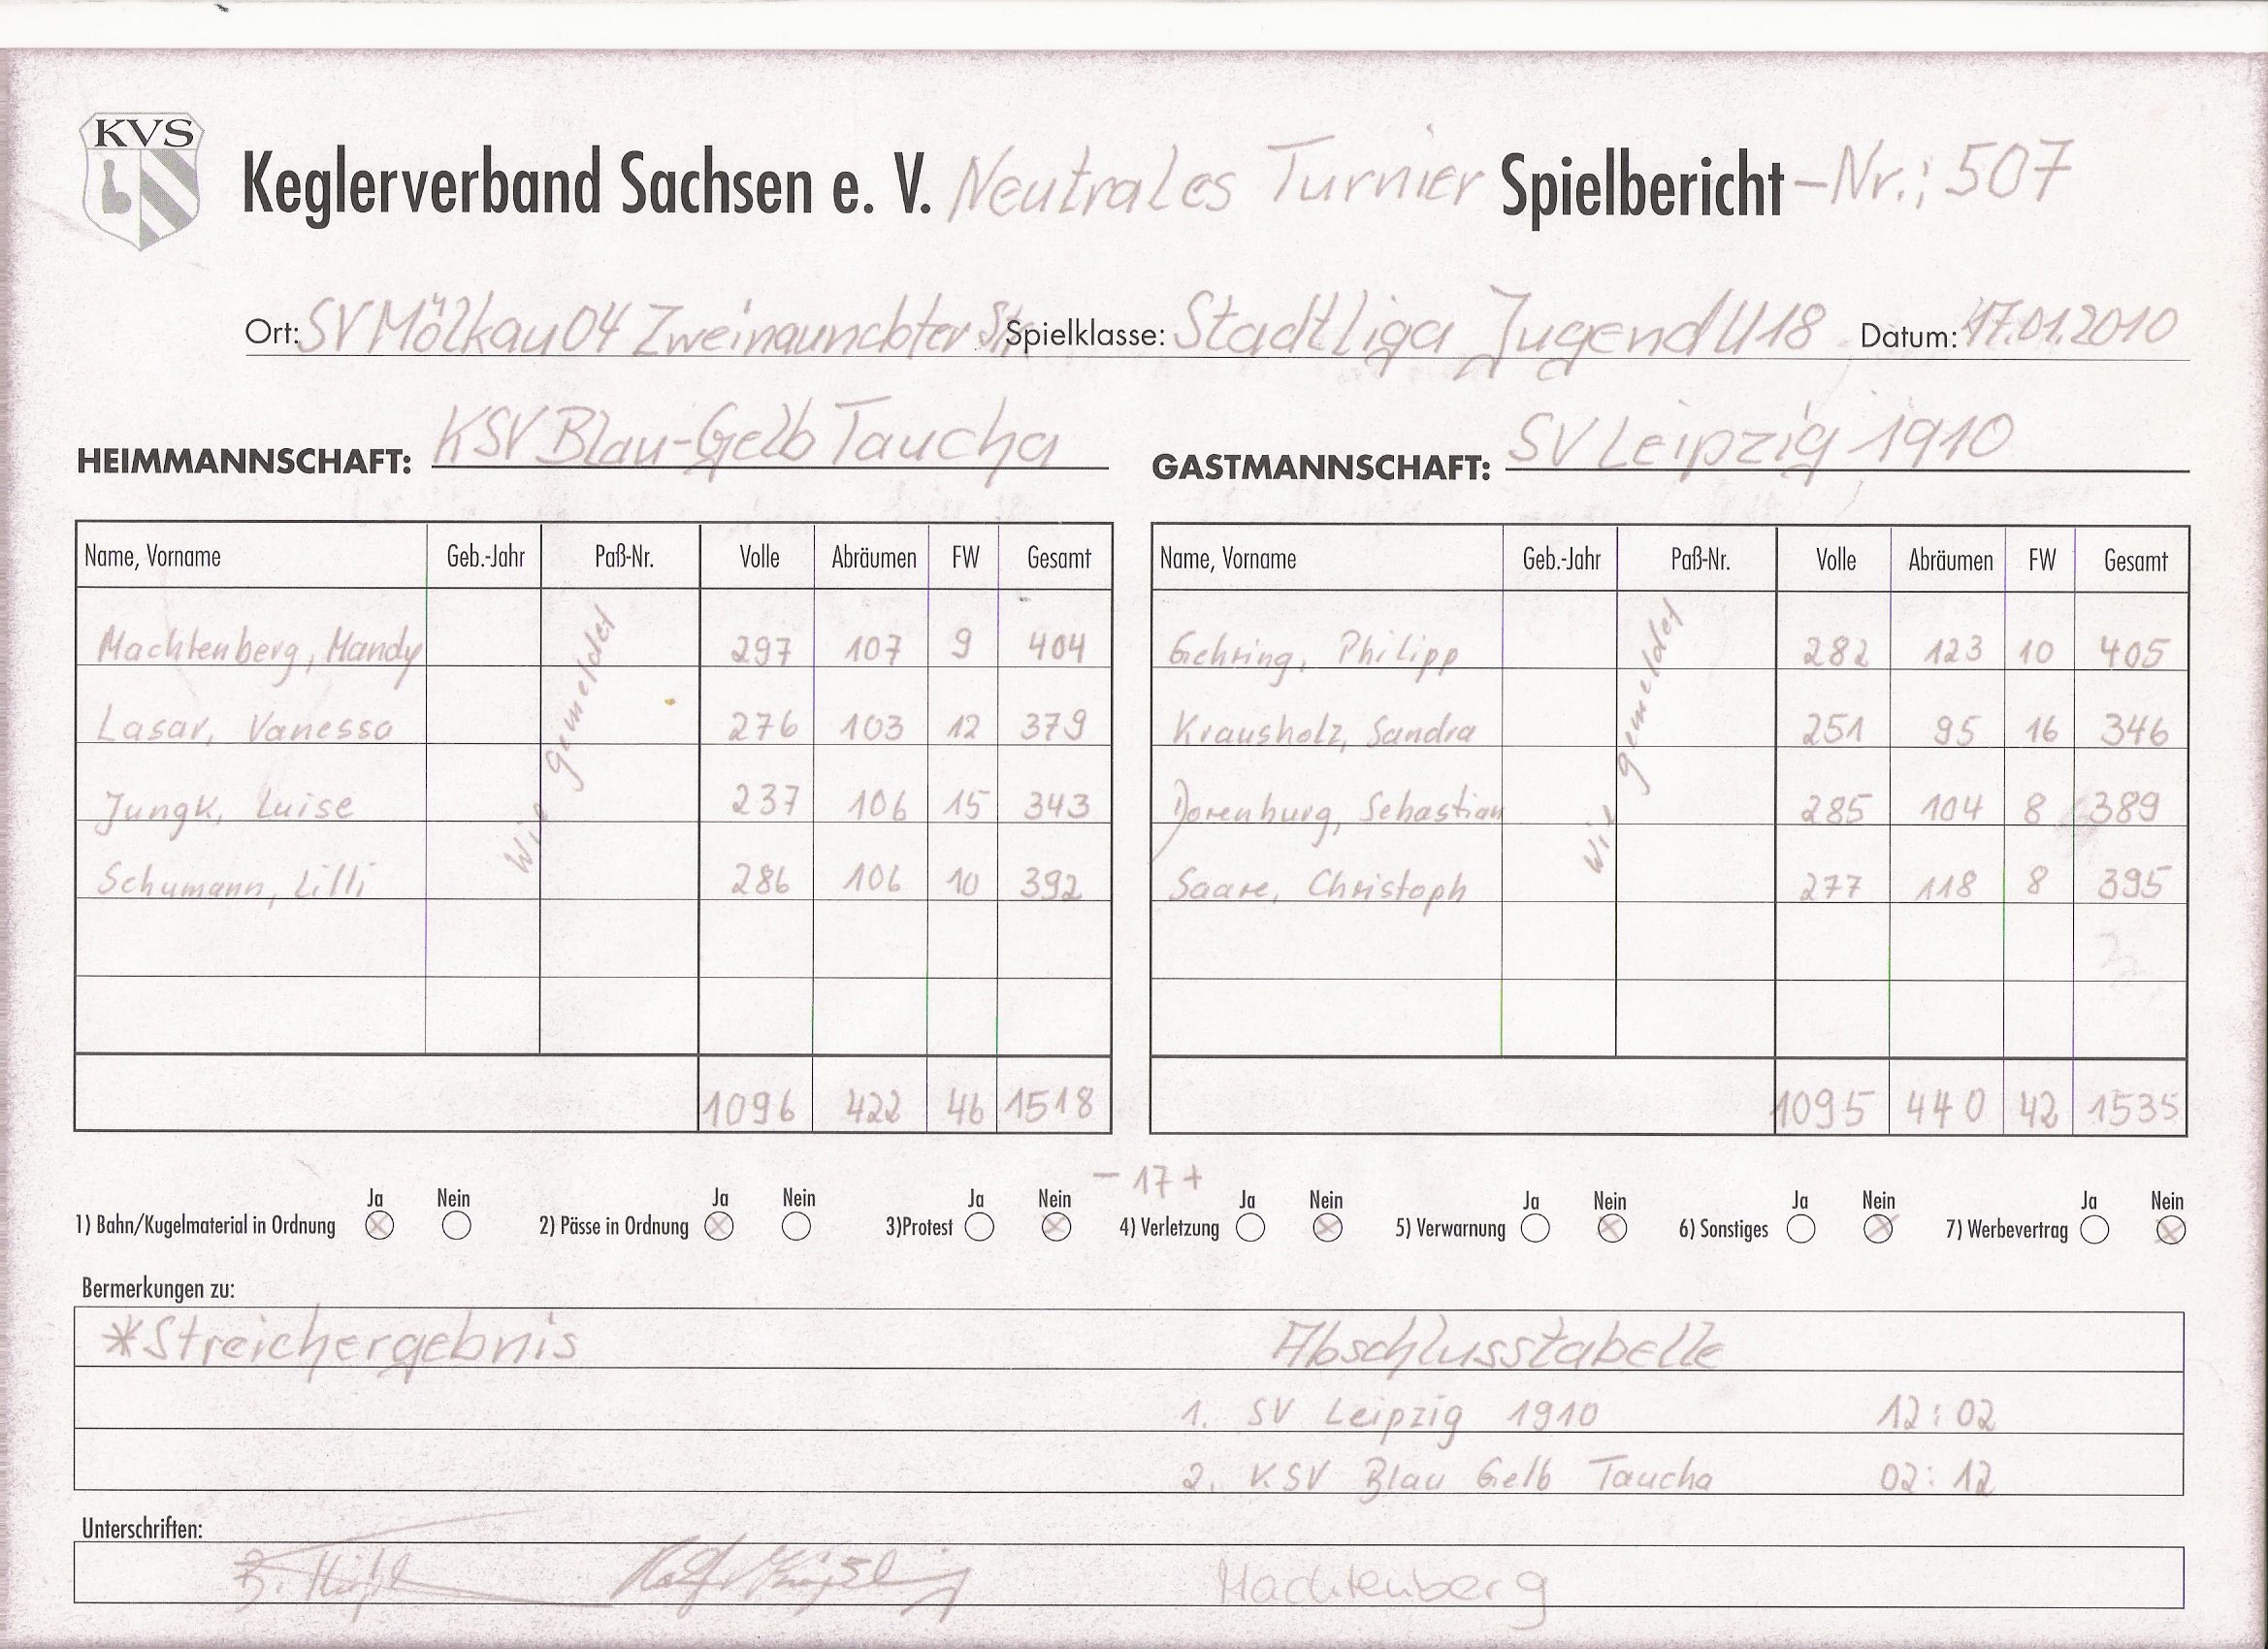 KVS
Keglerverband Sachsen e. V. Neutrales Turnier Spielbericht -Nr.: 507
Ort: SV Mölkau 04 Zweinaunchter Str. Spielklasse: Stadtliga Jugend U18 Datum: 17.01.2010
HEIMMANNSCHAFT: KSV Blau-Gelb Taucha GASTMANNSCHAFT: SV Leipzig 1910
Name, Vorname Geb.-Jahr Paß-Nr. Volle Abräumen FW Gesamt Name, Vorname Geb.-Jahr Paß-Nr. Volle Abräumen FW Gesamt
Wie gemeldet Wie gemeldet
Machtenberg, Mandy 297 107 9 404 Gehring, Philipp 282 123 10 405
Lasar, Vanessa 276 103 12 379 Krausholz, Sandra 251 95 16 346
Jungk, Luise 237 106 15 343 Dorenburg, Sebastian 285 104 8 389
Schumann, Lilli 286 106 10 392 Saare, Christoph 277 118 8 395
1096 422 46 1518 1095 440 42 1535
- 17 +
Ja Nein Ja Nein Ja Nein Ja Nein Ja Nein Ja Nein Ja Nein
1) Bahn/Kugelmaterial in Ordnung 2) Pässe in Ordnung 3)Protest 4) Verletzung 5) Verwarnung 6) Sonstiges 7) Werbevertrag
Bermerkungen zu:
*Streichergebnis Abschlusstabelle
1. SV Leipzig 1910 12:02
2. KSV Blau Gelb Taucha 02:12
Unterschriften:
Machtenberg